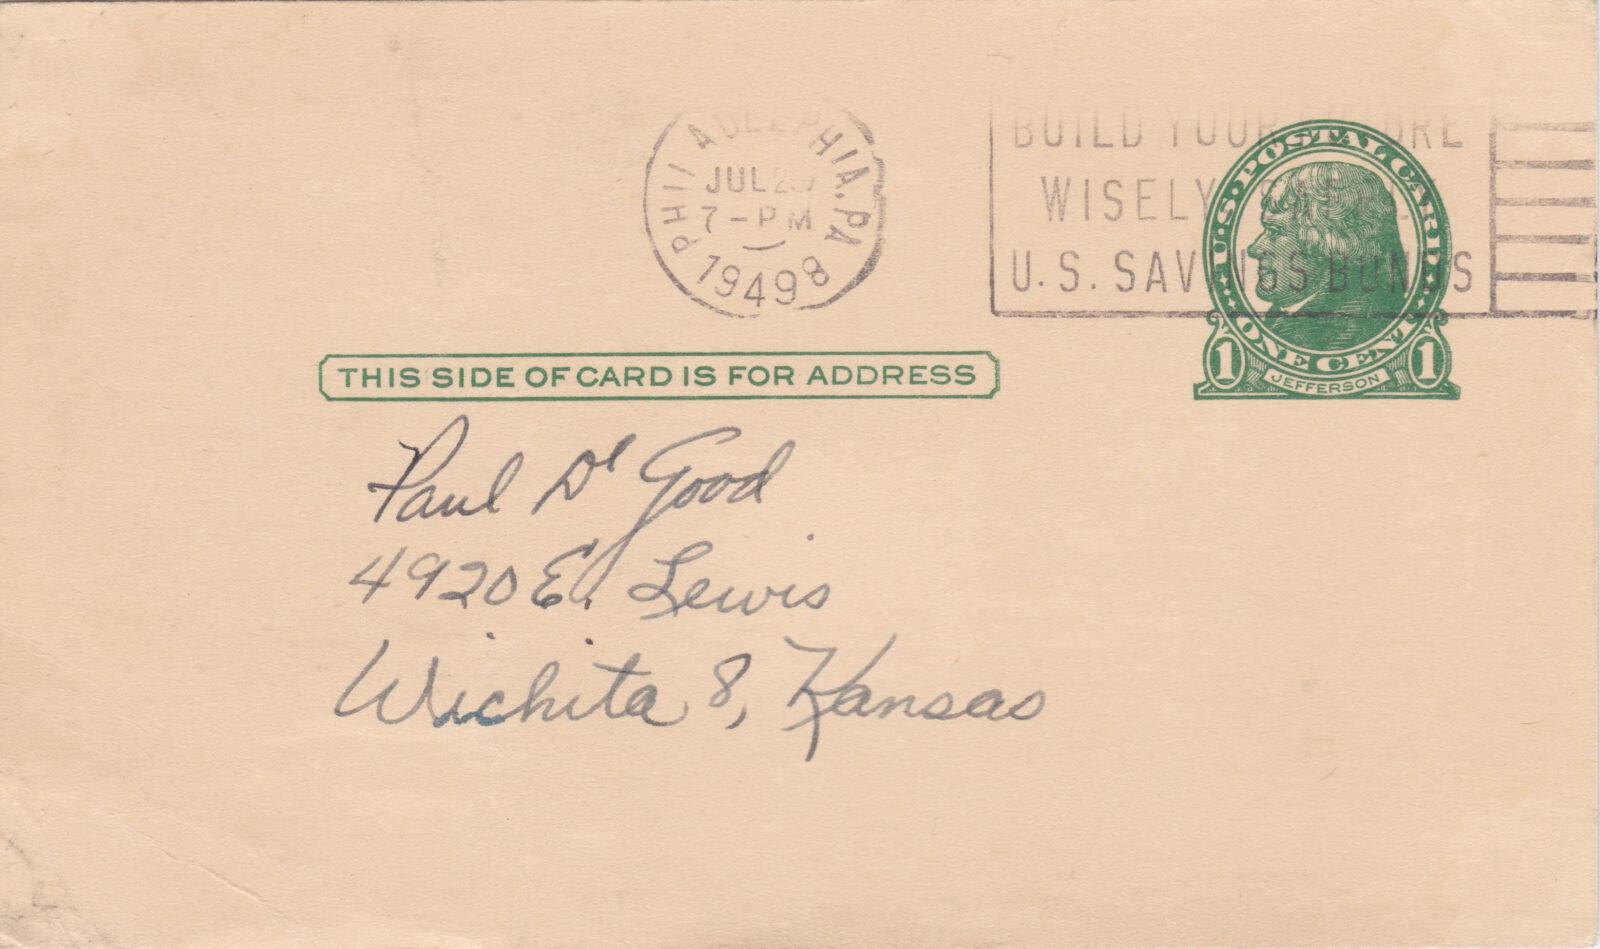 PHILADELPHIA, PA
JUL
7-PM
1949
8
BUILD YOUR
WISELY
U.S. SAVINGS BONDS
U.S. POSTAL CARD
ONE CENT
1 JEFFERSON 1
THIS SIDE OF CARD IS FOR ADDRESS
Paul De Good
4920 E. Lewis
Wichita 8, Kansas